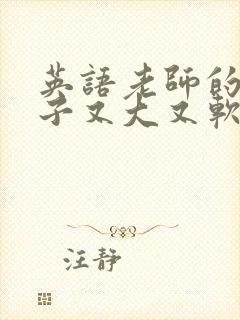 英語老師的
子又大又軟
汪靜